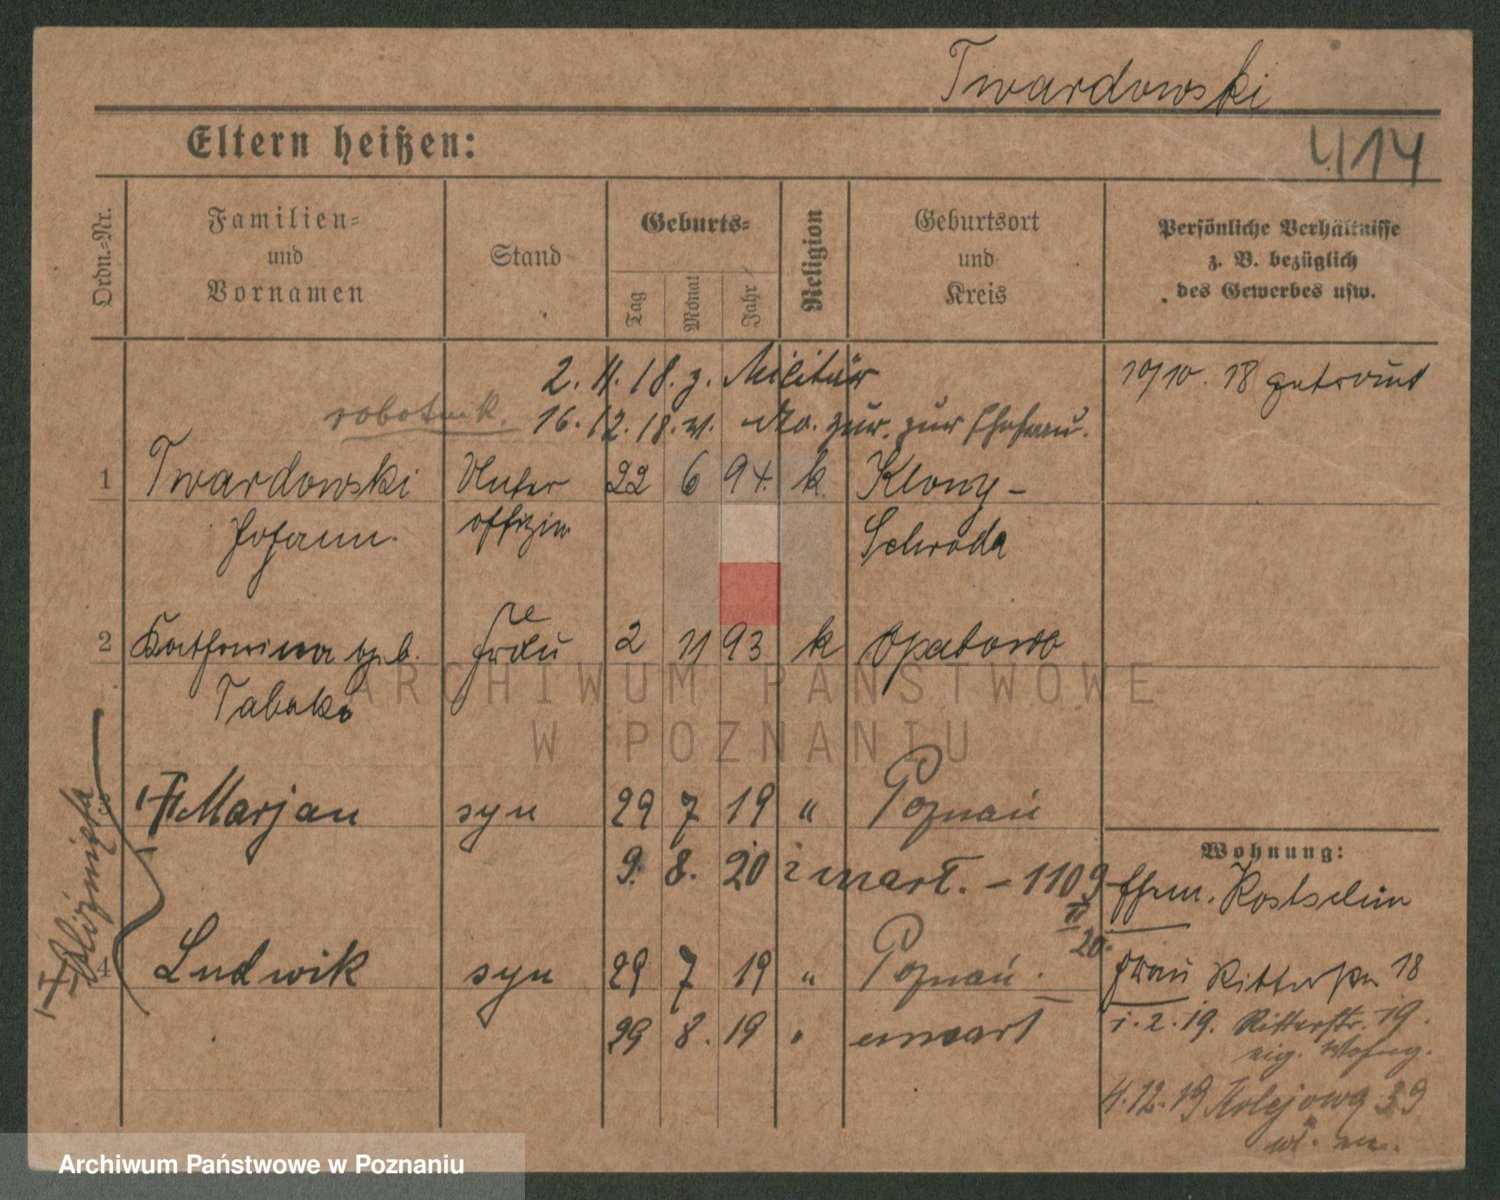 Twardowski
Eltern heißen:
414
Ordn.-Nr.
Familien-
und
Vornamen
Stand
Geburts-
Tag
Monat
Jahr
Religion
Geburtsort
und
Kreis
Persönliche Verhältnisse
z. B. bezüglich
des Gewerbes usw.
2. 11. 18. z. Militär
10/10. 18 getraut
robotnik. 16. 12. 18. v. zur. zur Ehefrau.
1 Twardowski Unter 22 6 94. k. Klony -
Johann. offizier Schroda
2 Katharina geb. Frau 2 11 93 k Opatowo
Tabaka
ARCHIWUM PAŃSTWOWE
W POZNANIU
Marjan syn 29 7 19 " Poznań
Wohnung:
9. 8. 20 zmart. - 1109
II
20.
Hrm. Rostschin
bliźnięta
4 Ludwik syn 29 7 19 " Poznań.
Frau Ritterstr 18
29 8. 19 umart
1. 2. 19. Ritterstr. 19.
eig. Wohng.
4. 12. 19 Kolejowa 39
wł. m.
Archiwum Państwowe w Poznaniu